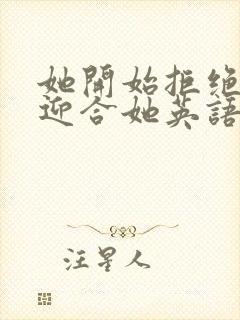 她開始拒绝
迎合她英語
汪星人